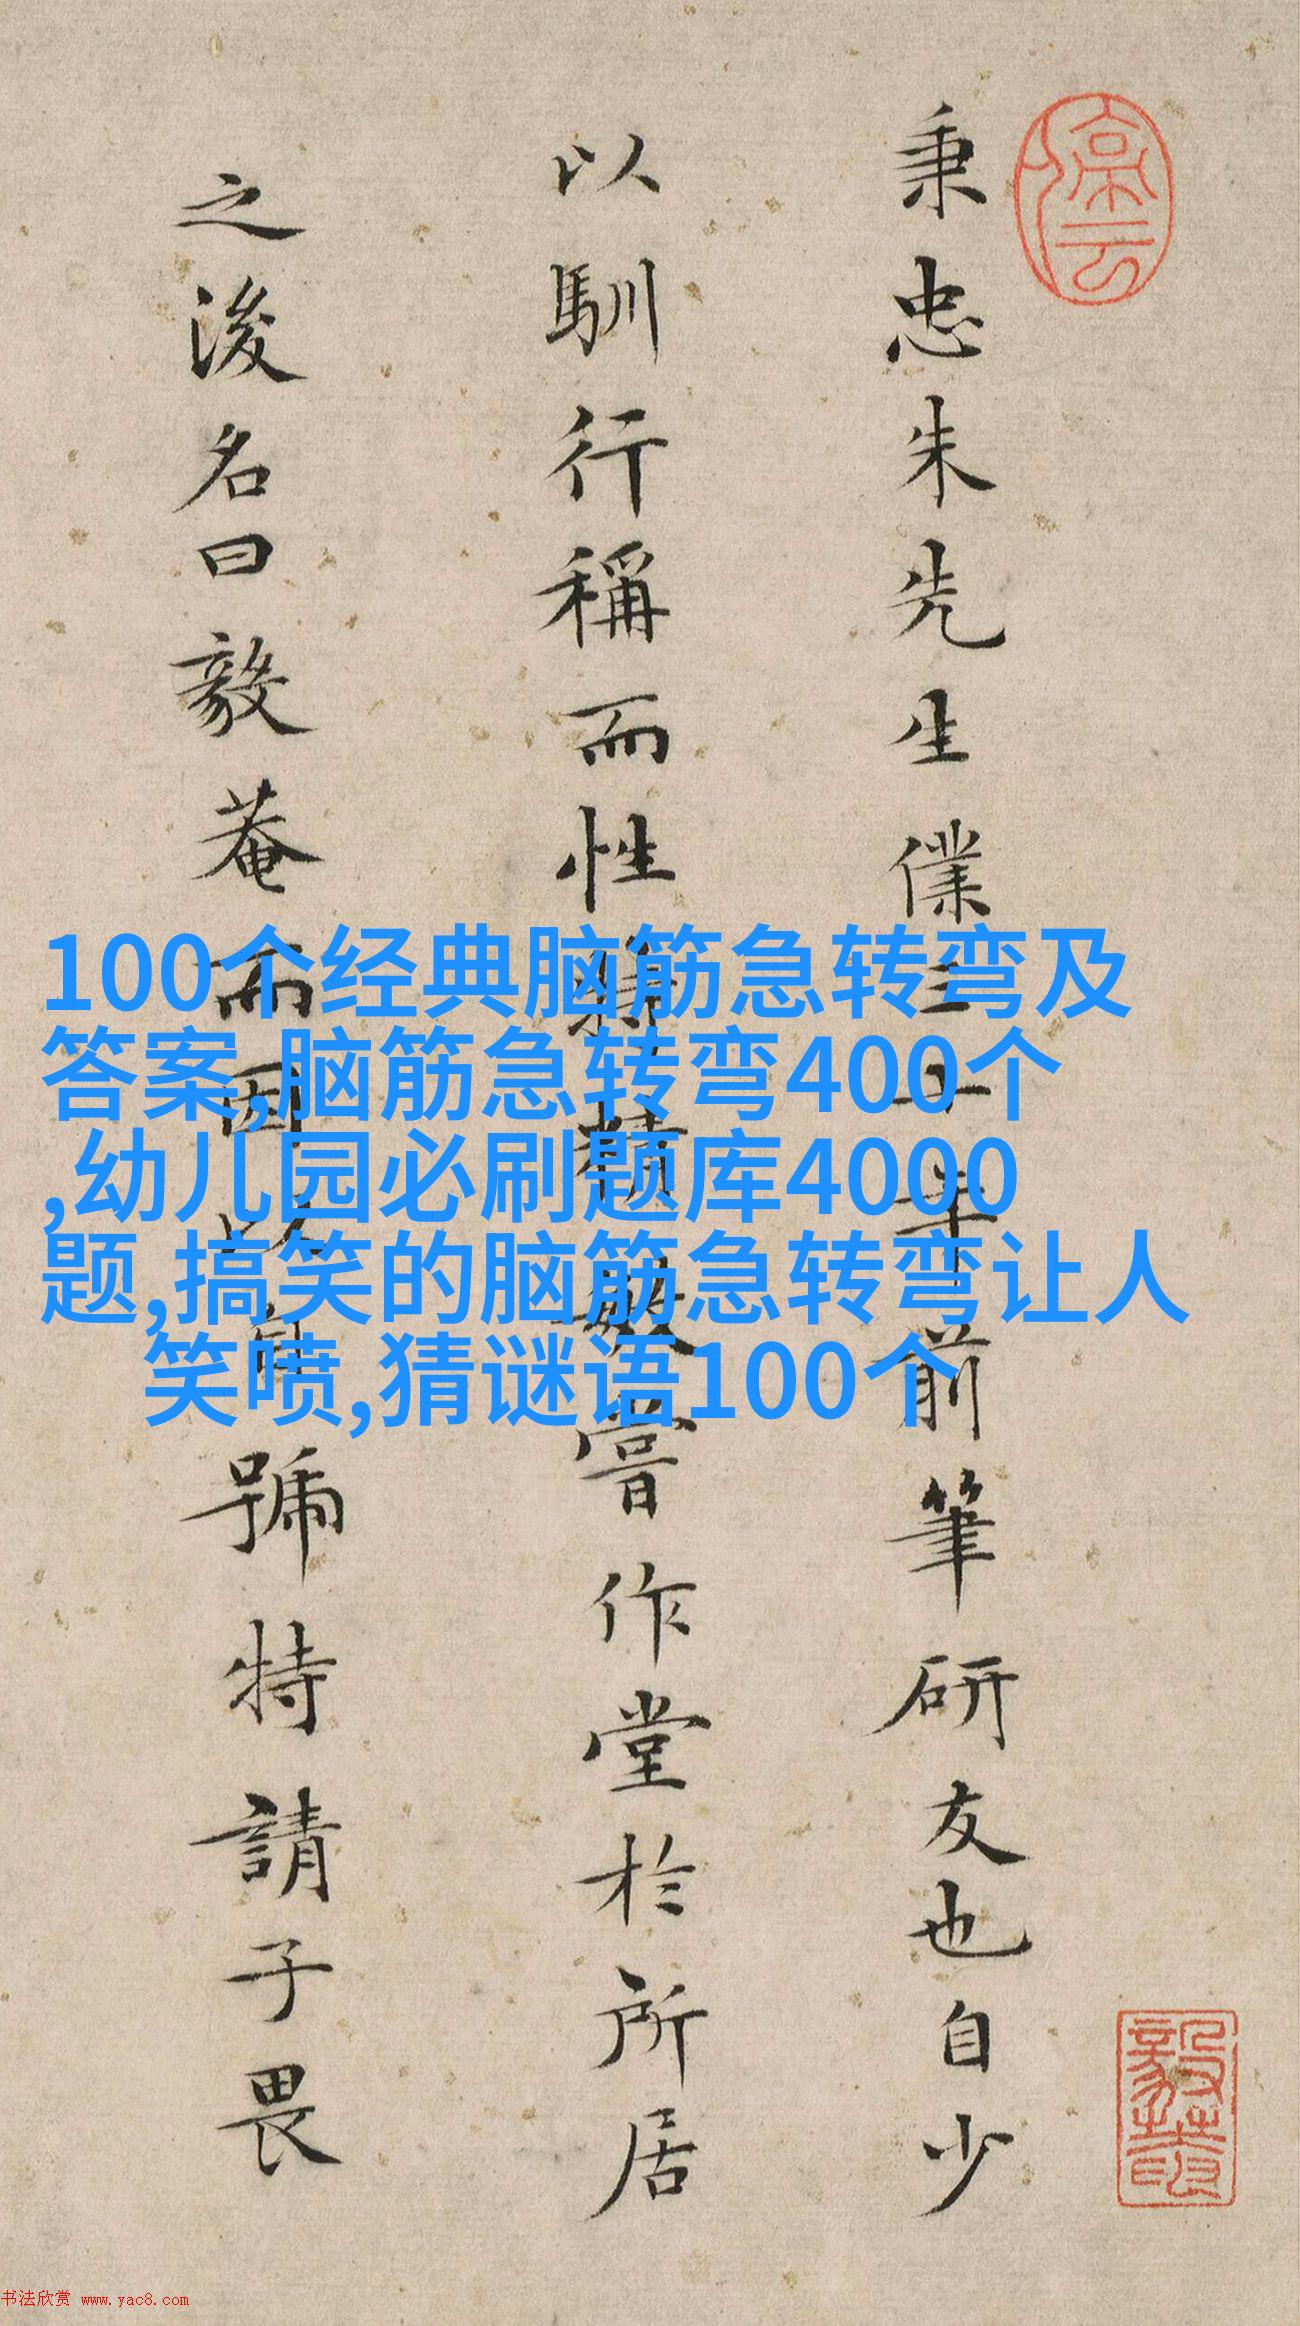 秉忠朱先生僕三十年前筆研友也自少
以馴行稱而性精敏嘗作堂於所居
之後名曰毅菴而因以自號特請子畏
100个经典脑筋急转弯及
答案,脑筋急转弯400个
,幼儿园必刷题库4000
题,搞笑的脑筋急转弯让人
笑喷,猜谜语100个
书法欣赏 www.yac8.com